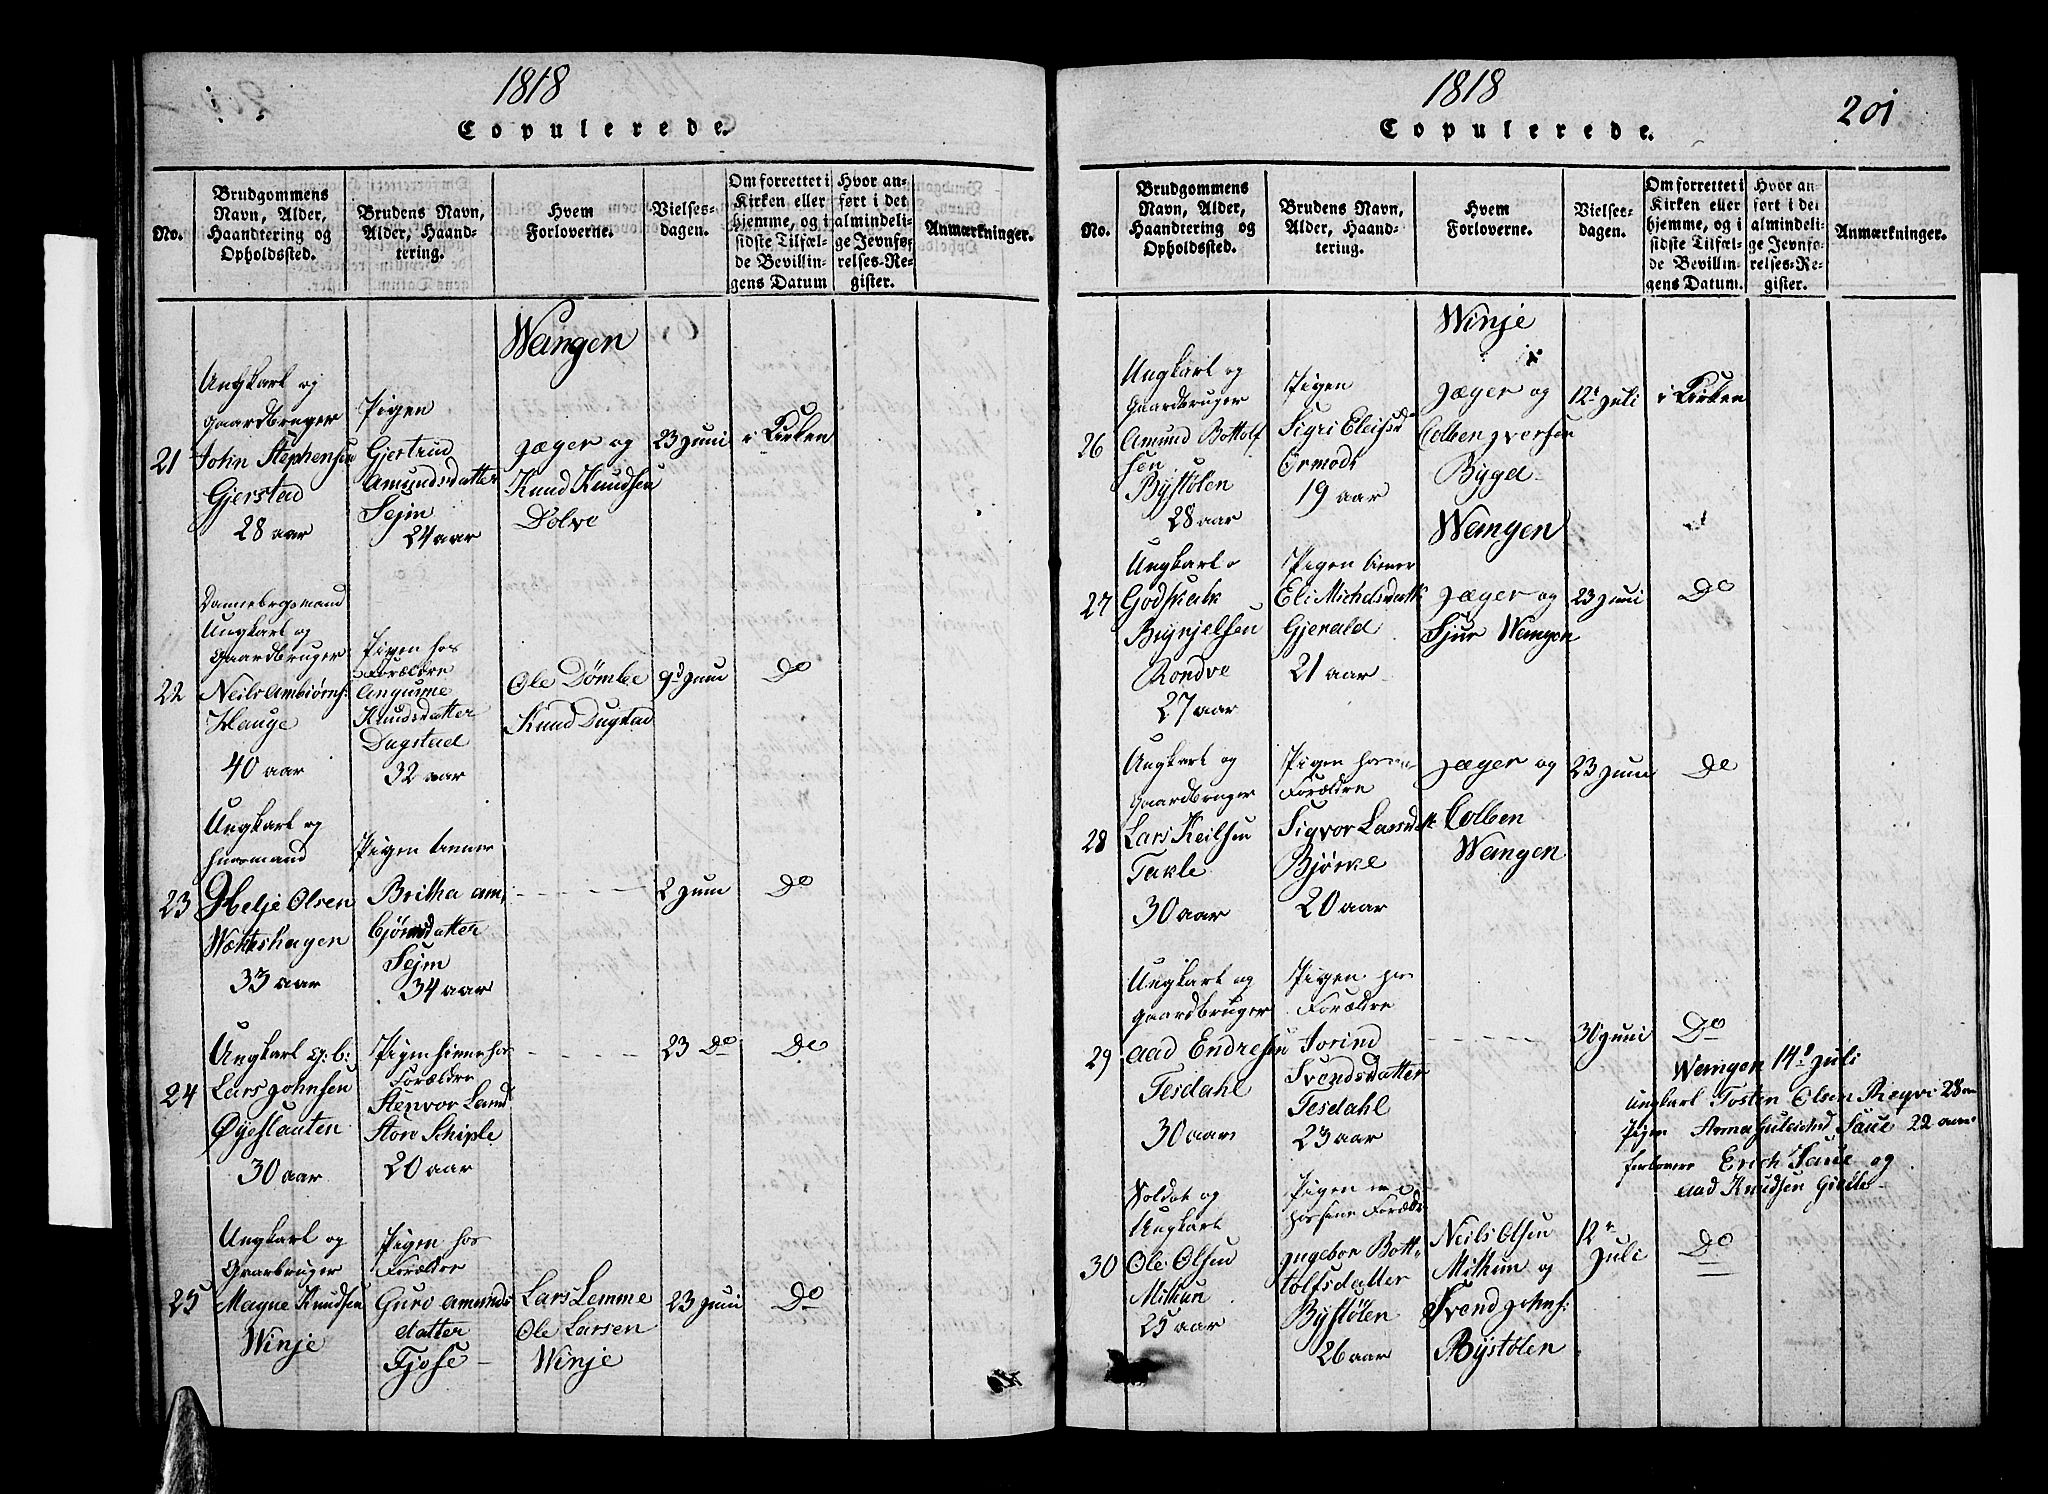 1818
Copulerede.
No.
Brudgommens
Navn, Alder,
Haandtering og
Opholdssted.
Brudens Navn,
Alder, Haand-
tering.
Hvem
Forloverne.
Vielses-
dagen.
Om forrettet i
Kirken eller
hjemme, og i
sidste Tilfæl-
de Bevillin-
gens Datum
Hvor an-
ført i det
almindeli-
ge Jevnfø-
relses-Re-
gister.
Anmærkninger.
Wangen
21
Ungkarl og
Gaardbruger
John Stephensen
Gjerstad
28 aar
Pigen
Gjertrud
Amundsdatter
Sejm
24 aar
Jæger og
Knud Knudsen
Dolve
23 Juni
i Kirken
22
Dannebrogsmand
Ungkarl og
Gaardbruger
Neils Ambiørns:
Hauge
40 aar
Pigen hos
Forældre
Angunne
Knudsdatter
Dugstad
32 aar
Ole Dömbe
Knud Dugstad
9d Juni
Do
23
Ungkarl og
Huusmand
Helje Olsen
Wæteshagen
33 aar
Pigen tiener
Britha Am-
bjørnsdatter
Sejm
34 aar
2 Juni
Do
24
Ungkarl G: b:
Lars Johnsen
Øyeflauten
30 aar
Pigen hos
Forældre
Stenvor Larsd
Store Schiple
20 aar
23 Do
Do
25
Ungkarl og
Gaarbruger
Magne Knudsen
Winje
Pigen hos
Forældre
Guro Amunds
datter
Fjose
Lars Lemme
Ole Larsen
Winje
23 Juni
Do
1818
201
Copulerede.
No.
Brudgommens
Navn, Alder,
Haandtering og
Opholdssted.
Brudens Navn,
Alder, Haand-
tering.
Hvem
Forloverne.
Vielses-
dagen.
Om forrettet i
Kirken eller
hjemme, og i
sidste Tilfæl-
de Bevillin-
gens Datum.
Hvor an-
ført i det
almindeli-
ge Jevnfø-
relses-Re-
gister.
Anmærkninger.
Winje
26
Ungkarl og
Gaardbruger
Amund Bottolf
sen
Bystølen
28 aar
Pigen
Sigri Eleifsd
Ormode
19 aar
Jæger og
Colben Iversen
Bygd
12te Juli
i Kirken
Wangen
27
Ungkarl
Godskalk
Brynjelsen
Rondve
27 aar
Pigen tiener
Eli Michelsdatt
Gjerald
21 aar
Jæger og
Sjur Wangen
23 Juni
Do
28
Ungkarl og
Gaardbruger
Lars Keilsen
Takle
30 aar
Pigen hos
Forældre
Sigvor Larsdt
Bjørke
20 aar
Jæger og
Colben
Wangen
23 Juni
Do
29
Ungkarl og
Gaardbruger
Aad Endresen
Tesdahl
30 aar
Pigen hos
Forældre
Jorind
Svendsdatter
Tesdahl
23 aar
30 Juni
Do
Wangen 14de Juli
Ungkarl Tosten Olsen Reqvi 28 aar
Pigen Anna Gulachsd Saue 22 aar
forlovere Erich Saue og
Aad Knudsen Gielle
30
Soldat og
Ungkarl
Ole Olsen
Mitkun
25 aar
Pigen
hos sine Forældr
Ingebor Bott-
tolfsdatter
Bystølen
26 aar
Neils Olsen
Mitkun og
Svend Johns:
Bystølen
12te
Juli
Do